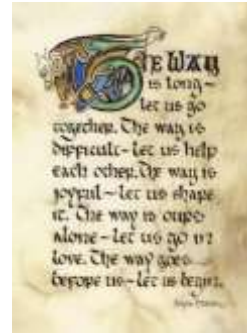 The Way
is long ~
let us go
together. The way is
difficult ~ let us help
each other. The way is
joyful ~ let us share
it. The way is ours
alone ~ let us go in
love. The way goes
before us ~ let us begin.